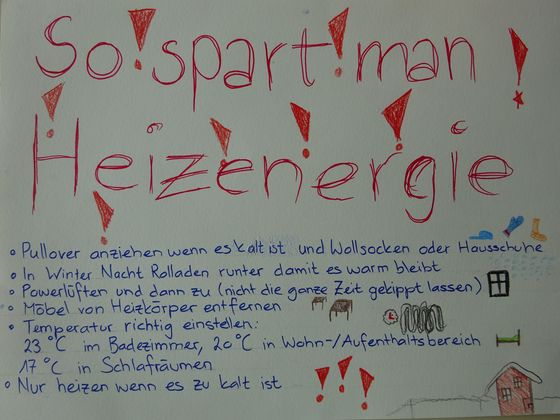 So spart man
Heizenergie
• Pullover anziehen wenn es kalt ist und Wollsocken oder Hausschuhe
• In Winter Nacht Rolladen runter damit es warm bleibt
• Powerlüften und dann zu (nicht die ganze Zeit gekippt lassen)
• Möbel von Heizkörper entfernen
• Temperatur richtig einstellen:
23 °C im Badezimmer, 20 °C in Wohn-/Aufenthaltsbereich
17 °C in Schlafräumen
• Nur heizen wenn es zu kalt ist